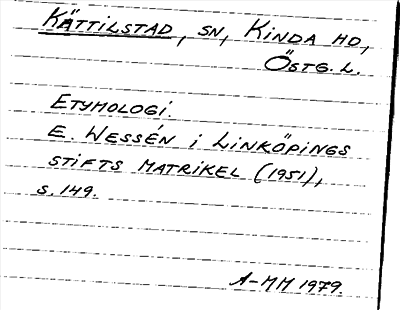 KÄTTILSTAD, SN, KINDA HD,
ÖSTG. L.
ETYMOLOGI.
E. WESSÉN i LINKÖPINGS
STIFTS MATRIKEL (1951),
s. 149.
A-MM 1979.